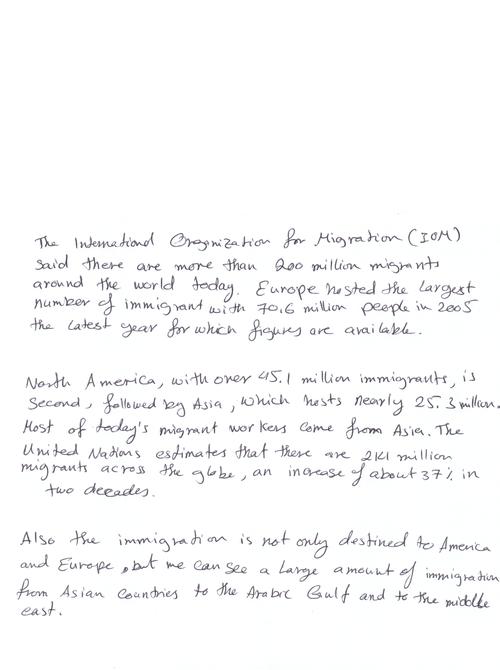 The International Organization for Migration (IOM)
said there are more than 200 million migrants
around the world today. Europe hosted the largest
number of immigrant with 70.6 million people in 2005
the latest year for which figures are available.
North America, with over 45.1 million immigrants, is
second, followed by Asia, which hosts nearly 25.3 million.
Most of today's migrant workers come from Asia. The
United Nations estimates that there are 214 million
migrants across the globe, an increase of about 37% in
two decades.
Also the immigration is not only destined to America
and Europe, but we can see a large amount of immigration
from Asian countries to the Arabic Gulf and to the middle
east.